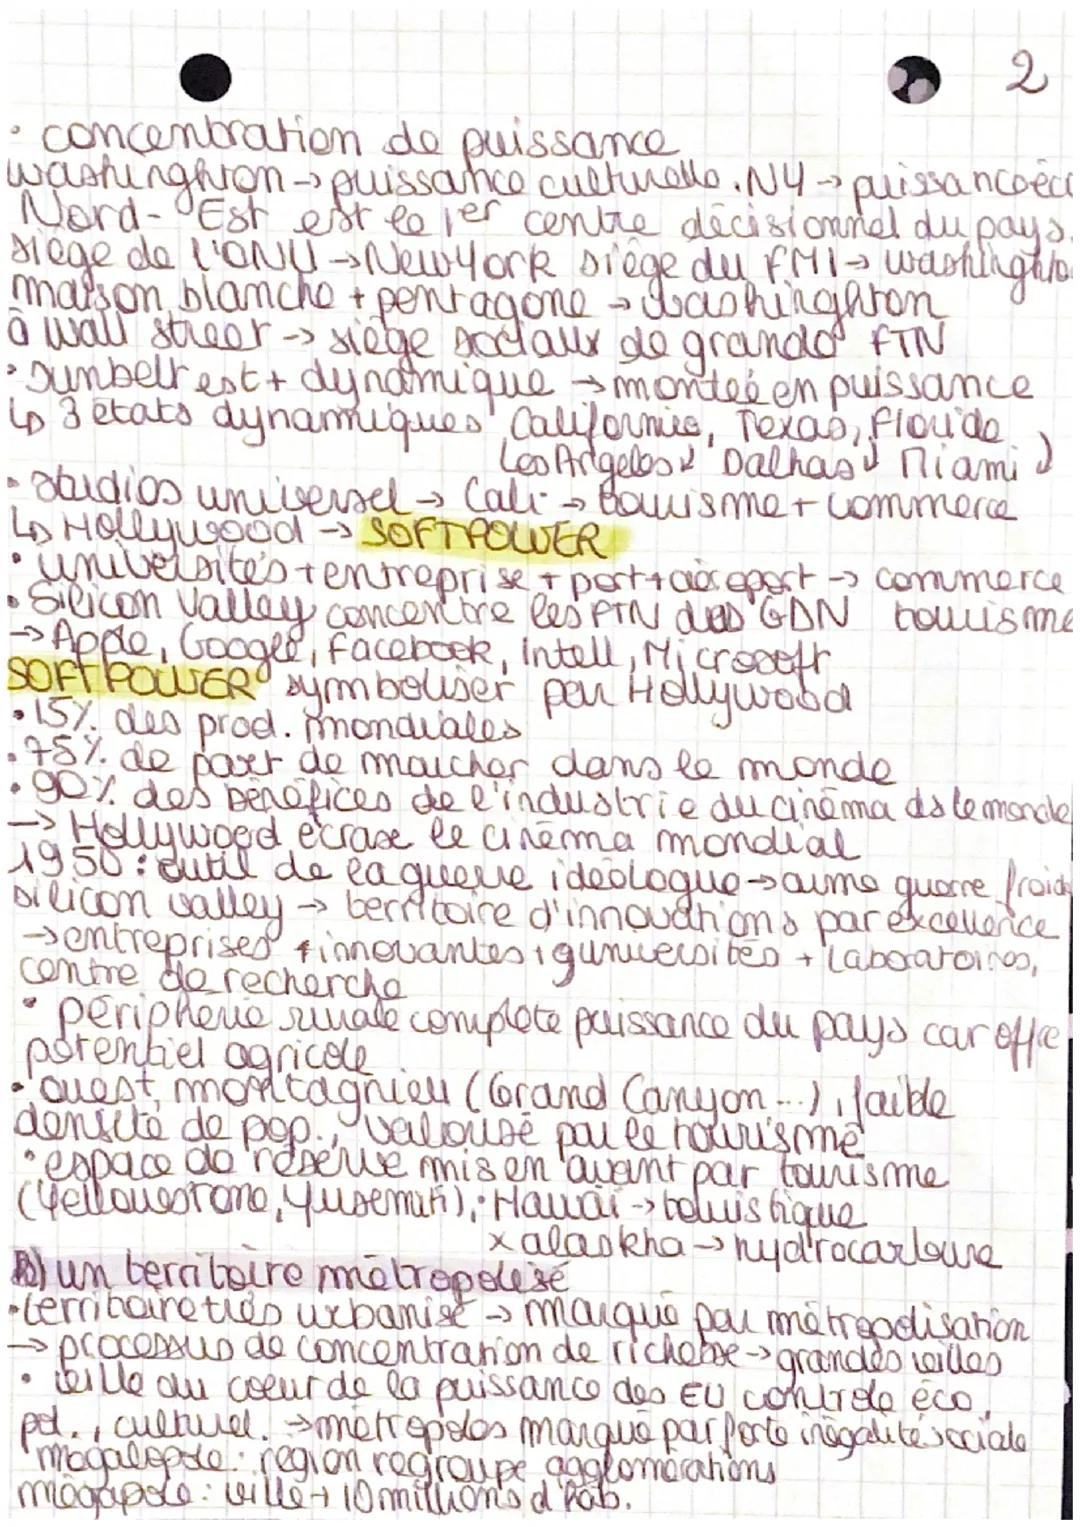 2
• concentration de puissance
washinghton → puissance culturelle. NY → puissance éco
Nord-Est est le 1er centre décisionnel du pays.
siège de l'ONU → New York siège du FMI → washinghto
maison blanche + pentagone → washinghton
à wall street → siège sociaux de grande FTN
• sunbelt est + dynamique → montée en puissance
↳ 3 états dynamiques Californie, Texas, Floride
Los Angeles ↓ Dalhas ↓ Miami ↓
• studios universel → Cali → tourisme + commerce
↳ Hollywood → SOFT POWER
• universités + entreprise + port + aéroport → commerce
• Silicon Valley concentre les FTN des GDN tourisme
→ Apple, Google, Facebook, Intell, Microsoft
SOFT POWER symboliser par Hollywood
• 15% des prod. mondiales
• 75% de part de marcher dans le monde
• 90% des bénéfices de l'industrie du cinéma ds le monde
→ Hollywood écrase le cinéma mondial
1950 : outil de la guerre idéologue → arme guerre froid
silicon valley → territoire d'innovations par excellence
→ entreprises + innovantes, universités + laboratoires,
centre de recherche
• périphérie rurale complète puissance du pays car offre
potentiel agricole
• ouest, montagnieu (Grand Canyon...), faible
densité de pop., valorisé par le tourisme
• espace de réserve mis en avant par tourisme
(Yellowestone, Yusemiti), • Hawaï → touristique
x alaskha → hydrocarbure
B) un territoire métropolisé
• territoire très urbanisé → marqué par métropolisation
→ processus de concentration de richesse → grandes villes
• ville au coeur de la puissance des EU contrôle éco,
pol., culturel. → métropoles marqué par forte inégalité sociale
mégalopole : région regroupe agglomérations
mégapole : ville + 10 millions d'hab.